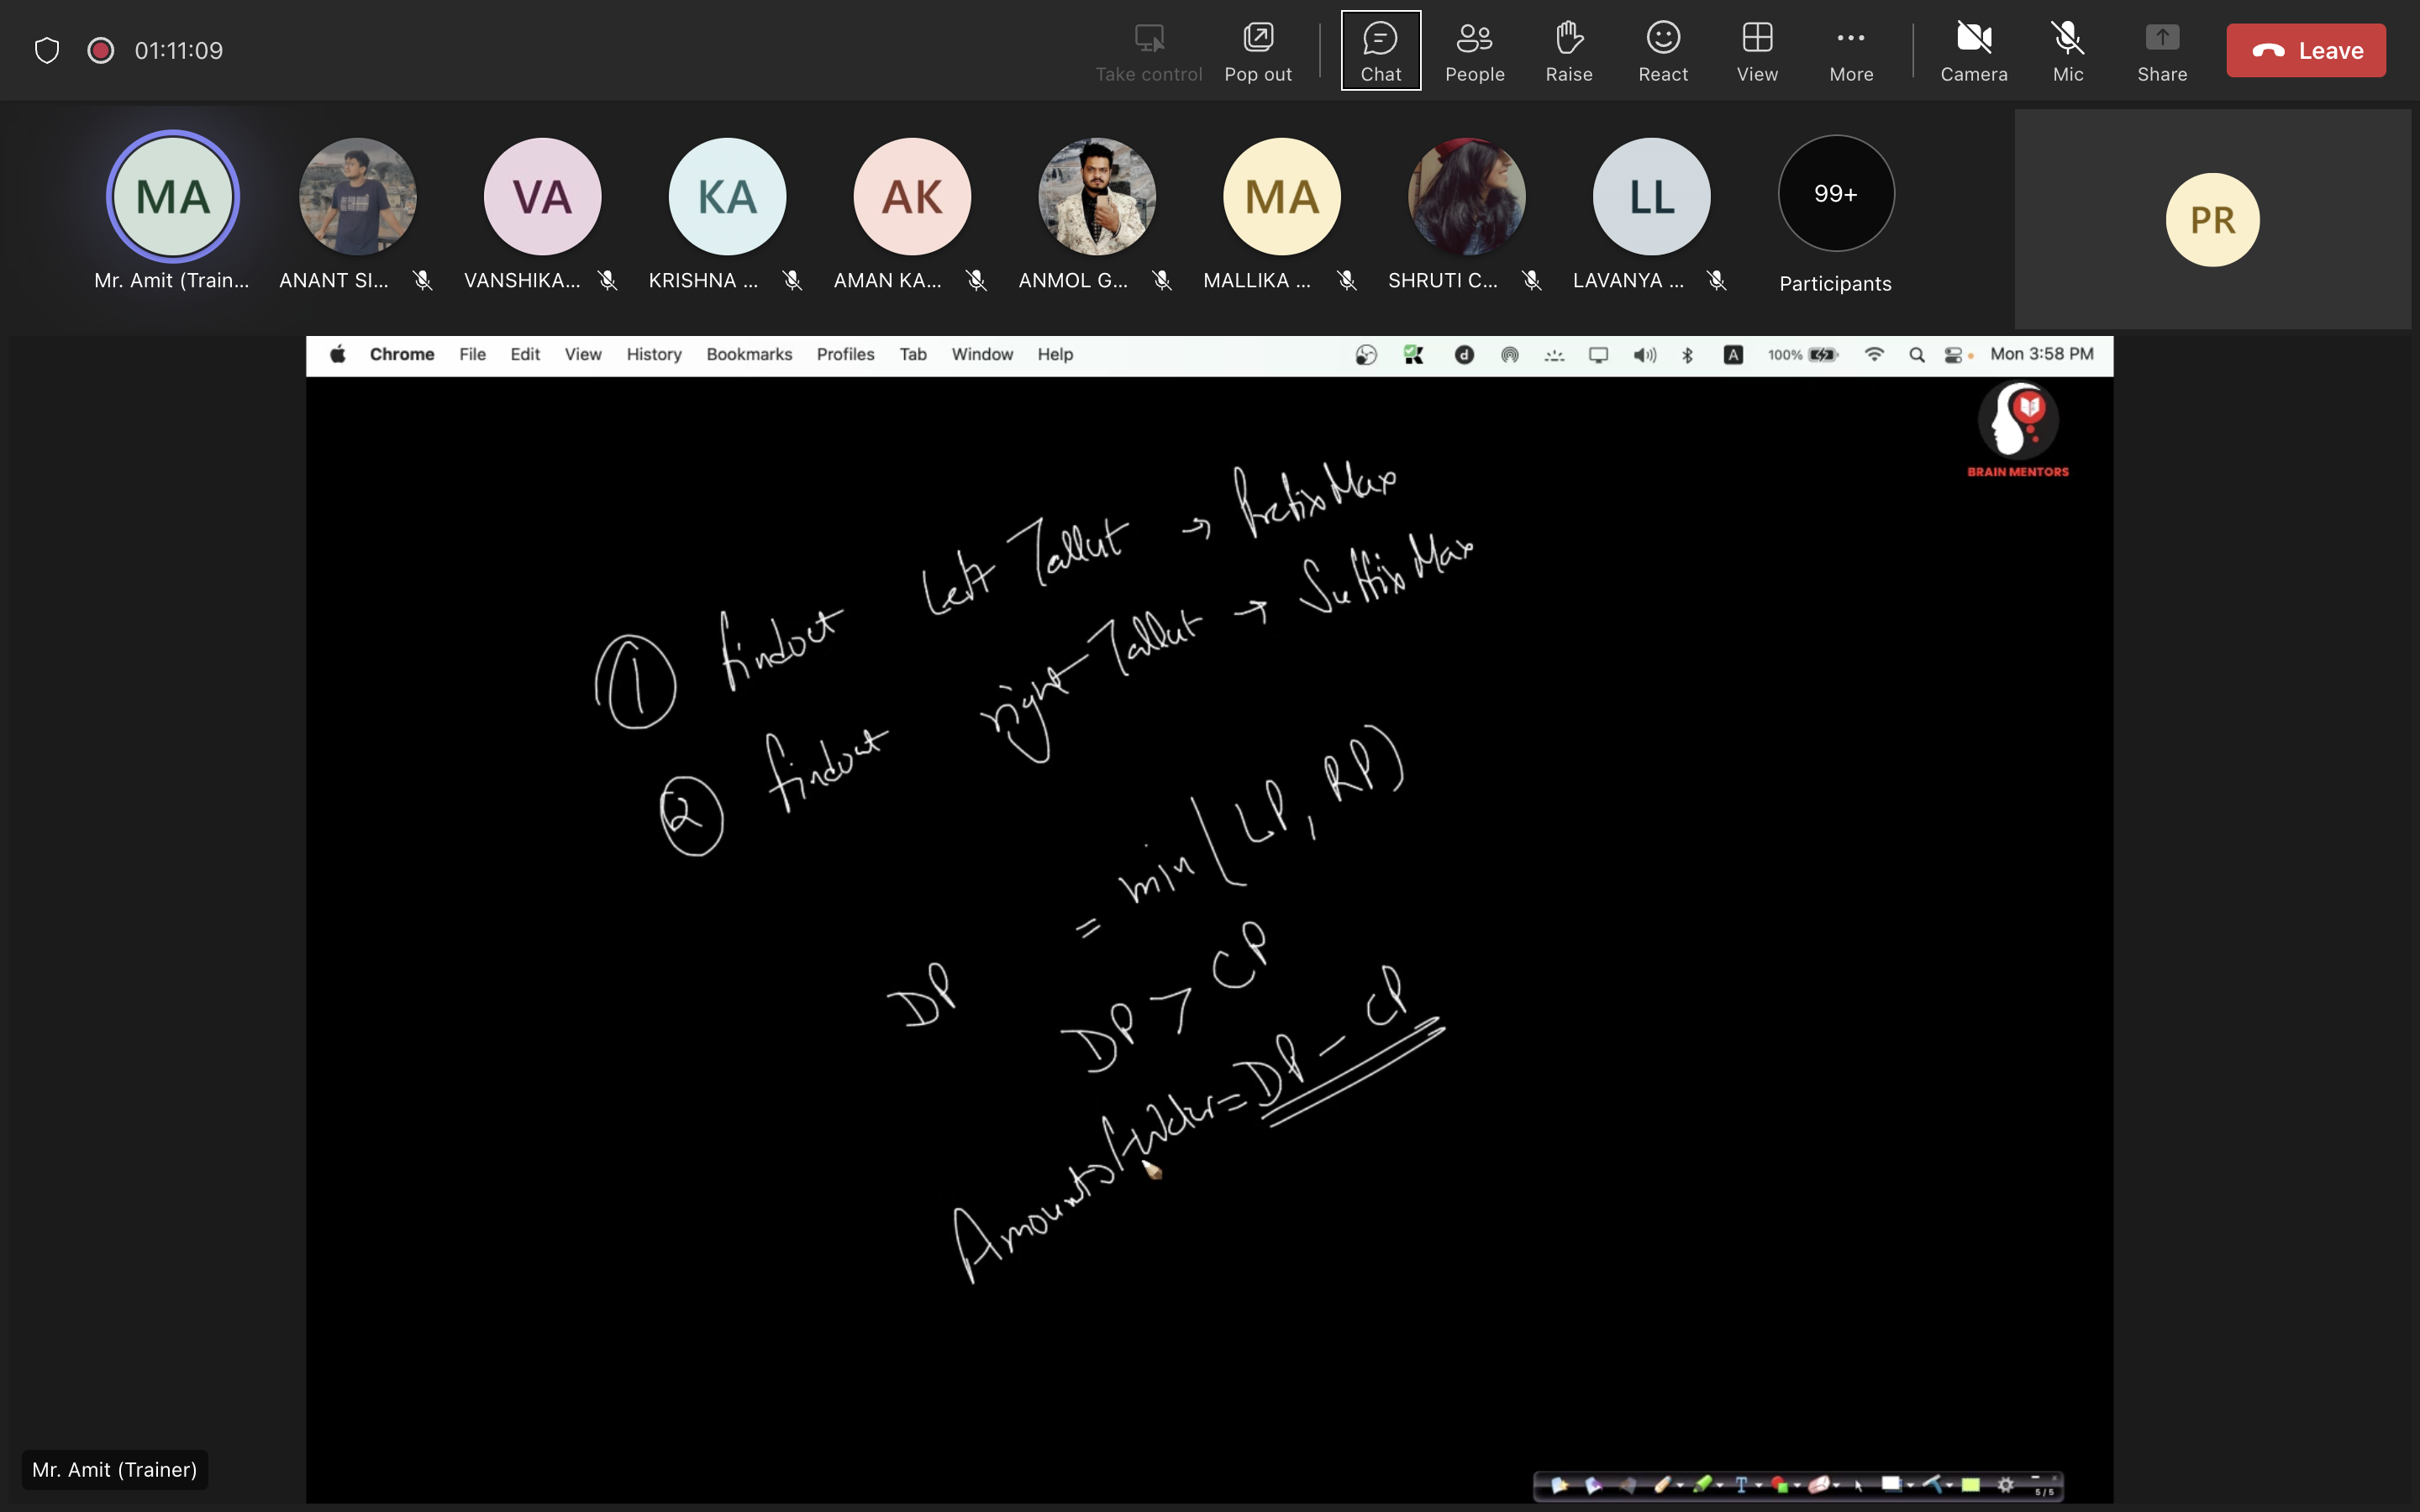 01:11:09
Take control
Pop out
Chat
People
Raise
React
View
More
Camera
Mic
Share
Leave
MA
VA
KA
AK
MA
LL
99+
PR
Mr. Amit (Train...
ANANT SI...
VANSHIKA...
KRISHNA ...
AMAN KA...
ANMOL G...
MALLIKA ...
SHRUTI C...
LAVANYA ...
Participants
Chrome File Edit View History Bookmarks Profiles Tab Window Help
A 100% Mon 3:58 PM
BRAIN MENTORS
1 findout Left Tallest → PrefixMax
2 findout right Tallest → SuffixMax
DP = min(LP, RP)
DP > CP
Amount of water = DP - CP
Mr. Amit (Trainer)
5 / 5